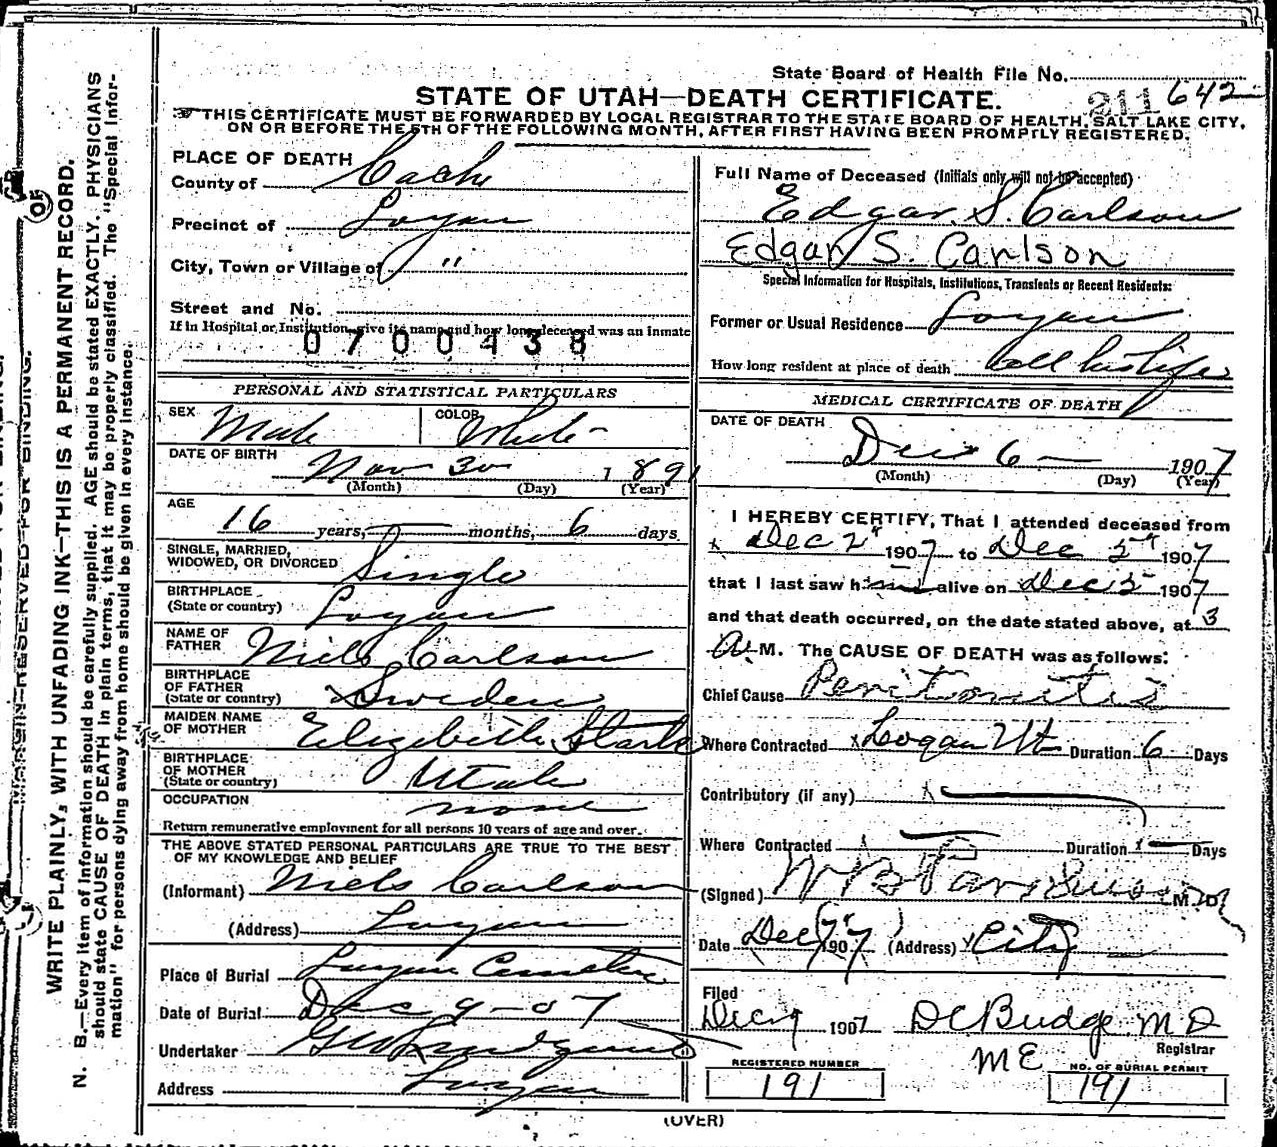 State Board of Health File No.
211 642
STATE OF UTAH—DEATH CERTIFICATE.
THIS CERTIFICATE MUST BE FORWARDED BY LOCAL REGISTRAR TO THE STATE BOARD OF HEALTH, SALT LAKE CITY,
ON OR BEFORE THE 5TH OF THE FOLLOWING MONTH, AFTER FIRST HAVING BEEN PROMPTLY REGISTERED.
WRITE PLAINLY, WITH UNFADING INK—THIS IS A PERMANENT RECORD.
N. B.—Every item of Information should be carefully supplied. AGE should be stated EXACTLY. PHYSICIANS
should state CAUSE OF DEATH in plain terms, that it may be properly classified. The "Special Infor-
mation" for persons dying away from home should be given in every instance.
PLACE OF DEATH
County of Cache
Precinct of Logan
City, Town or Village of "
Street and No.
If in Hospital or Institution, give its name and how long deceased was an inmate
0700438
PERSONAL AND STATISTICAL PARTICULARS
SEX Male COLOR White
DATE OF BIRTH Nov 30 1891
(Month) (Day) (Year)
AGE
16 years, months, 6 days
SINGLE, MARRIED,
WIDOWED, OR DIVORCED Single
BIRTHPLACE
(State or country) Logan
NAME OF
FATHER Niels Carlson
BIRTHPLACE
OF FATHER
(State or country) Sweden
MAIDEN NAME
OF MOTHER Elizebeth
BIRTHPLACE
OF MOTHER
(State or country) Utah
OCCUPATION none
Return remunerative employment for all persons 10 years of age and over.
THE ABOVE STATED PERSONAL PARTICULARS ARE TRUE TO THE BEST
OF MY KNOWLEDGE AND BELIEF
(Informant) Niels Carlson
(Address) Logan
Place of Burial Logan Cemetery
Date of Burial Dec 9-07
Undertaker
Address Logan
Full Name of Deceased (Initials only will not be accepted)
Edgar S. Carlson
Edgar S. Carlson
Special Information for Hospitals, Institutions, Transients or Recent Residents:
Former or Usual Residence Logan
How long resident at place of death all his life
MEDICAL CERTIFICATE OF DEATH
DATE OF DEATH
Dec 6 1907
(Month) (Day) (Year)
I HEREBY CERTIFY, That I attended deceased from
Dec 2 1907 to Dec 5 1907
that I last saw him alive on Dec 5 1907
and that death occurred, on the date stated above, at 3
A. M. The CAUSE OF DEATH was as follows:
Chief Cause Peritonitis
Where Contracted Logan Ut Duration 6 Days
Contributory (if any)
Where Contracted Duration Days
(Signed) W B Parkinson M. D.
Date Dec 7 1907 (Address) City
Filed
Dec 9 1907 D C Budge M D
Registrar
ME
REGISTERED NUMBER
191
NO. OF BURIAL PERMIT
191
(OVER)